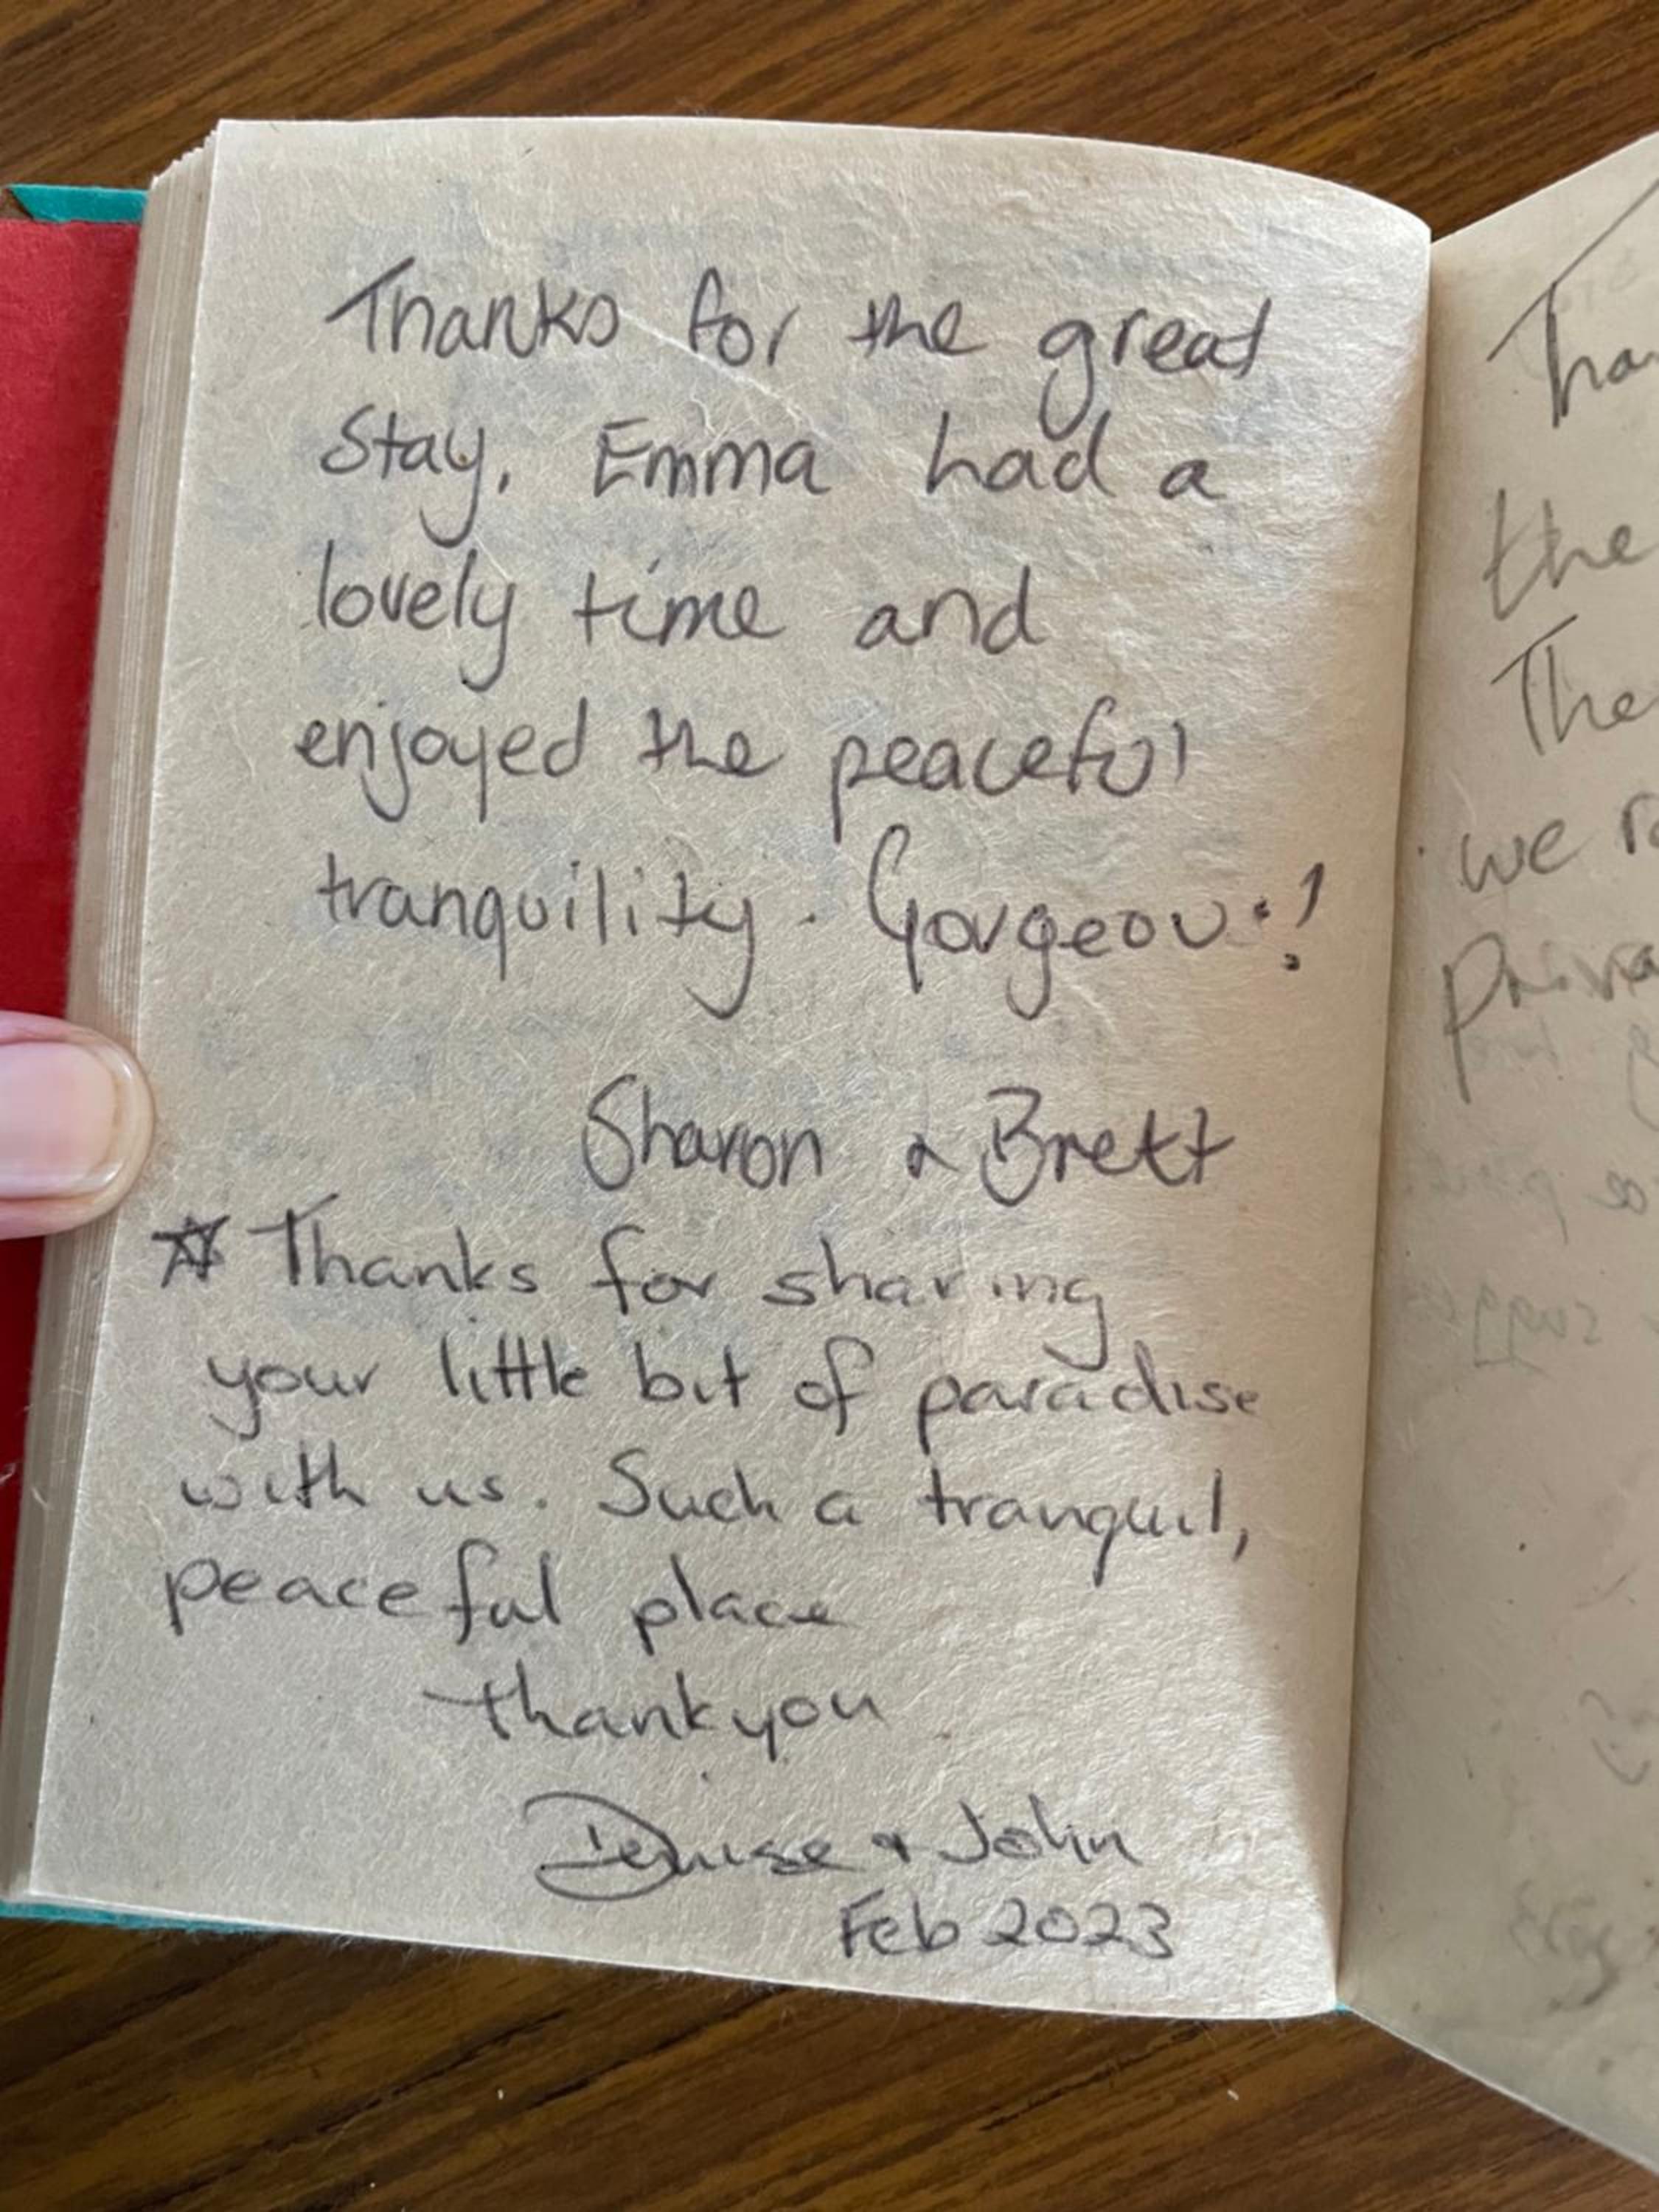 Thanks for the great
Stay, Emma had a
lovely time and
enjoyed the peaceful
tranquility. Gorgeous!
Sharon & Brett
☆ Thanks for sharing
your little bit of paradise
with us. Such a tranquil,
peaceful place
thankyou
Denise + John
Feb 2023
the
we